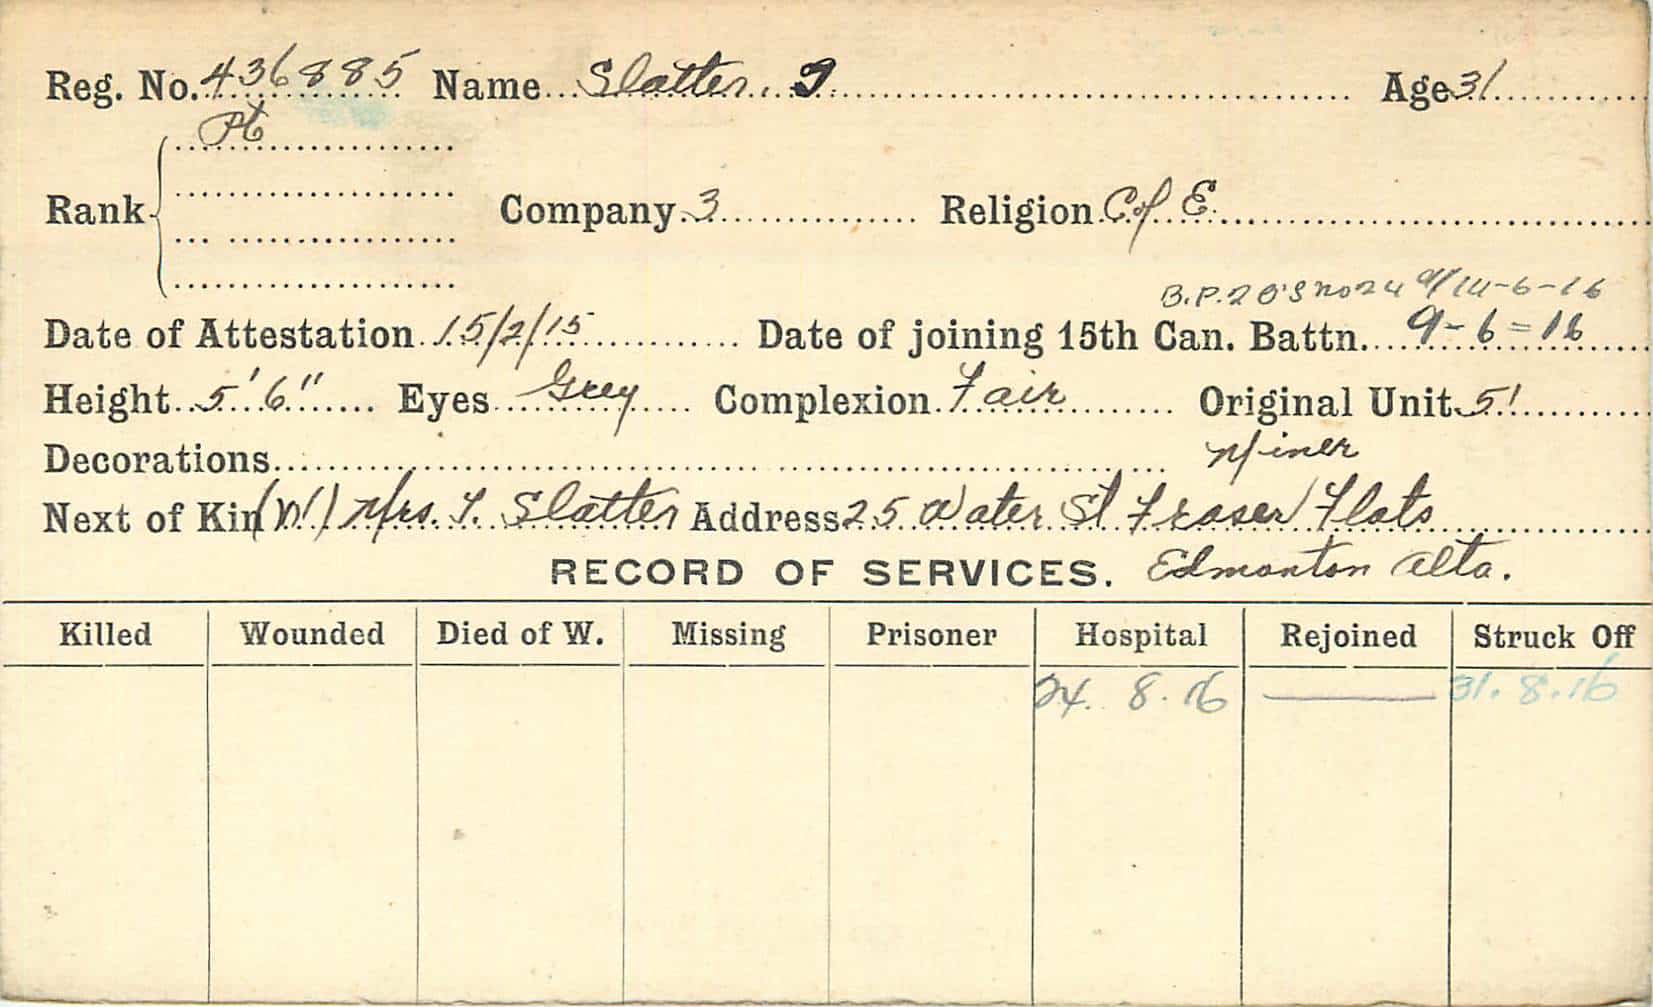 Reg. No. 436885 Name Slatter, J Age 31
Pt
Rank Company 3 Religion C of E.
B.P.2 O's no 24 d/14-6-16
Date of Attestation 15/2/15 Date of joining 15th Can. Battn. 9-6-16
Height 5' 6" Eyes Grey Complexion Fair Original Unit 51
Decorations Miner
Next of Kin (W) Mrs. J. Slatter Address 25 Water St Fraser Flats
RECORD OF SERVICES. Edmonton Alta.
Killed Wounded Died of W. Missing Prisoner Hospital Rejoined Struck Off
24. 8. 16 31. 8. 16